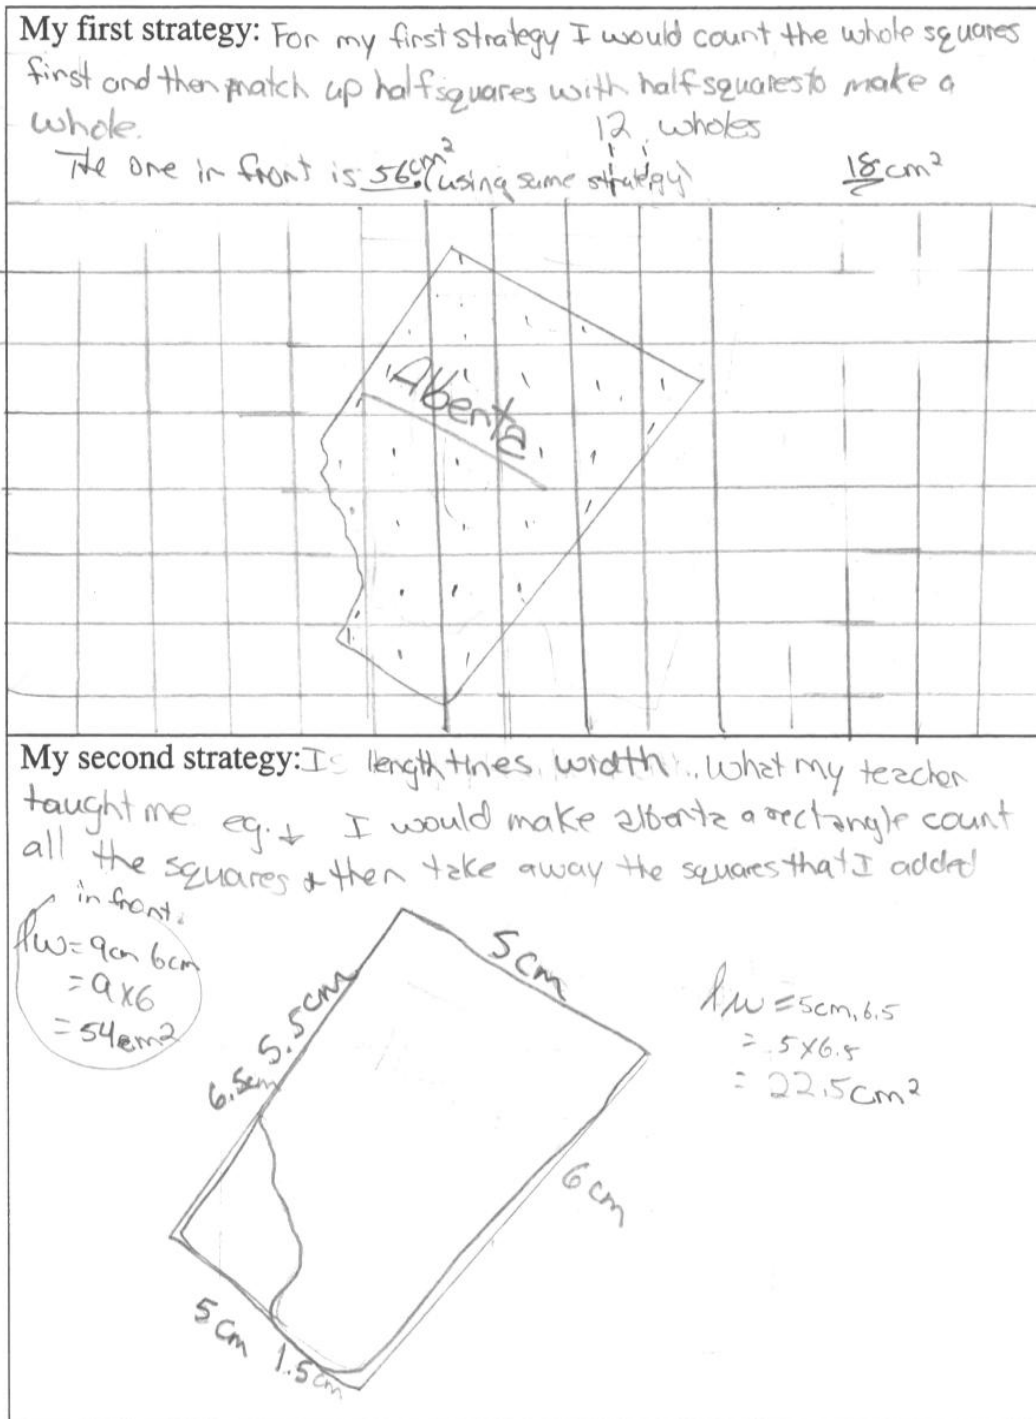 My first strategy: For my first strategy I would count the whole squares
first and then match up half squares with half squares to make a
whole.
12 wholes
The one in front is 56cm² (using same strategy)
18 cm²
Alberta
My second strategy: Is length times width.. what my teacher
taught me eg. I would make alberta a rectangle count
all the squares & then take away the squares that I added
in front.
lw = 9cm 6cm
= 9x6
= 54cm²
5cm
5.5cm
6.5cm
lw = 5cm, 6.5
= 5x6.5
= 22.5cm²
6cm
5cm
1.5cm